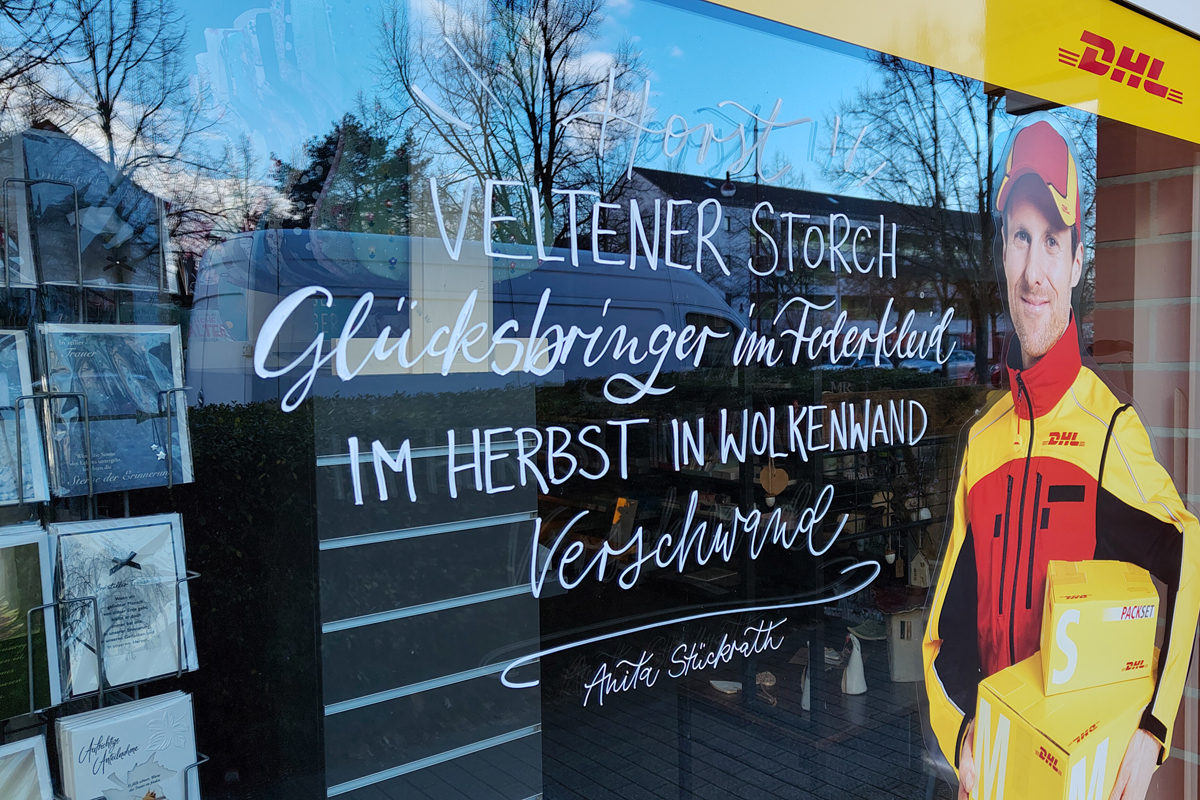 DHL
"Horst"
VELTENER STORCH
Glücksbringer im Federkleid
IM HERBST IN WOLKENWAND
Verschwand
Anita Stückrath
DHL
S
PACKSET
DHL
DHL
M
M
DHL
DHL
Trauer
Sterne der Erinnerung
Aufrichtige
Anteilnahme